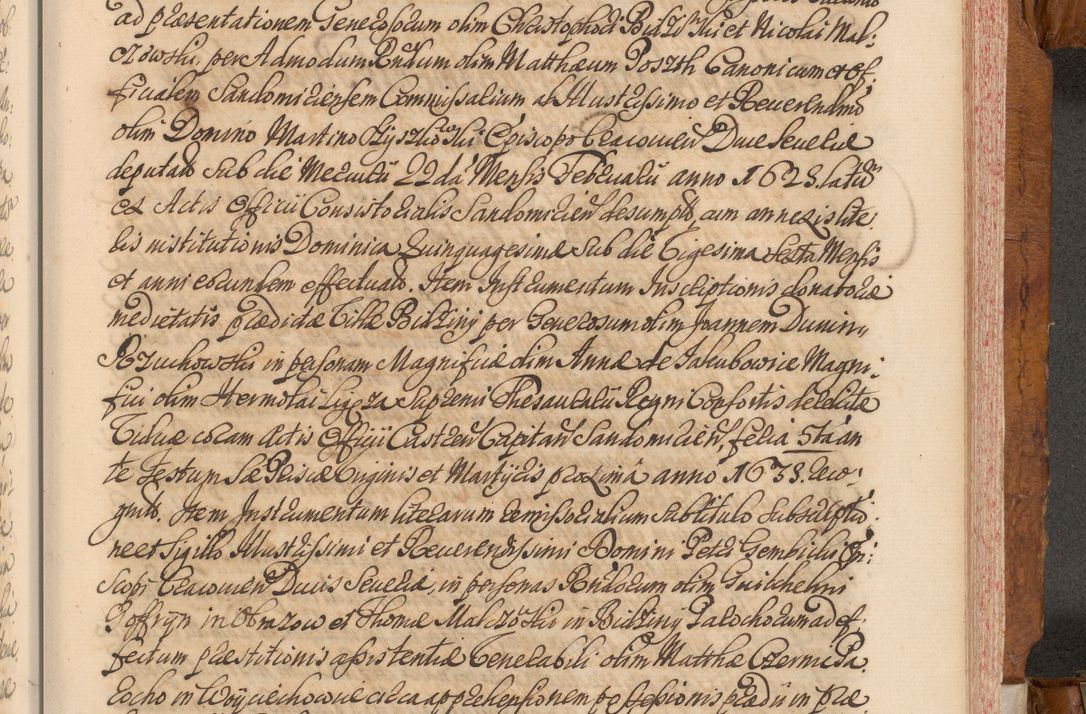 ad præsentationem Generosorum olim Christophori Bidziński et Nicolai Mal:
czowski, per Admodum Rndum olim Matthæum Poszth Canonicum et of:
ficialem Sandomiriensem Commissarium ab Illustrissimo et Reuerendmo
olim Domino Martino Szyszkowski Episcopo Cracouien Duce Seueriæ
deputato sub die Mercurii 22da Mensis Februarii anno 1623. latum
ex Actis Officii Consistorialis Sandomirien desumpto, cum annexis lite:
ris institutionis Dominica Quinquagesimæ sub die Vigesima Sexta Mensis
et anni eorundem effectuato. Item Instrumentum Inscriptionis donatoriæ
medietatis prædictæ Villæ Bidziny per Generosum olim Joannem Dunin
Rzuchowski in personam Magnificæ olim Annæ de Jakubowice Magni:
fici olim Hermolai Ligęza Supremi Thesaurarii Regni Consortis derelictæ
Viduæ coram Actis Officii Castren Capitan Sandomirien, feria 5ta an
te Festum Sæ Priscæ Virginis et Martyris proxima anno 1633. reco:
gnit. Item Instrumentum literarum remissorialium sub titulo subscriptio:
ne et Sigillo Illustrissimi et Reuerendissimi Domini Petri Gembicki Epi:
scopi Cracouien Ducis Seueriæ, in personas Rndorum olim Guilhelmi
Joffryn in Obrazow et Thomæ Malczowski in Bidziny Parochorum ad ef:
fectum præstitionis assistentiæ Venerabili olim Matthæ Czernic Pa:
rocho in Woyciechowice circa apprehensionem possessionis prædii in præ